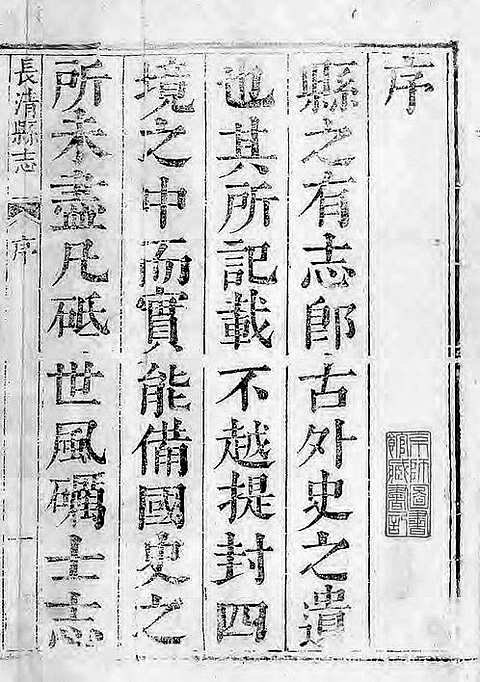 序
縣之有志郎古外史之遺
也其所記載不越提封四
境之中而實能備國史之
所未盡凡砥世風礪士志
長清縣志 序 一
京師圖書館藏書記